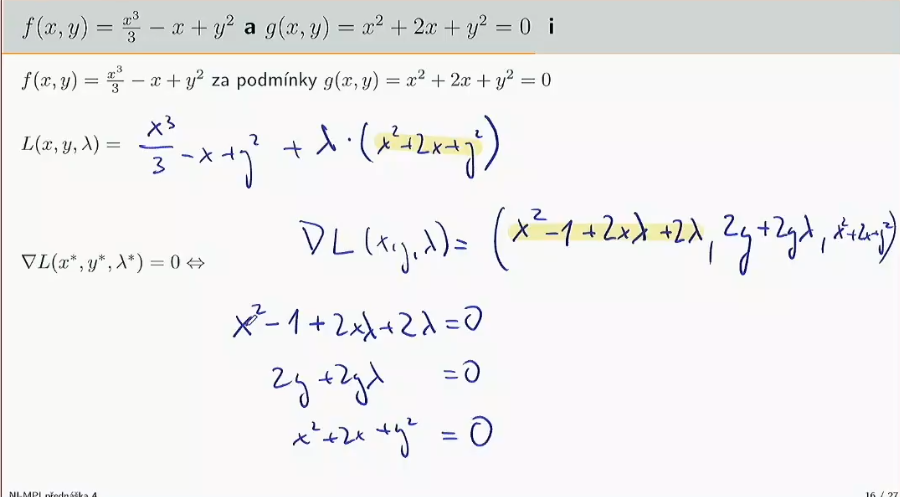 f(x, y) = x³/3 − x + y² a g(x, y) = x² + 2x + y² = 0 i
f(x, y) = x³/3 − x + y² za podmínky g(x, y) = x² + 2x + y² = 0
L(x, y, λ) = x³/3 − x + y² + λ · (x² + 2x + y²)
∇L(x, y, λ) = (x² − 1 + 2xλ + 2λ, 2y + 2yλ, x² + 2x + y²)
∇L(x*, y*, λ*) = 0 ⇔
x² − 1 + 2xλ + 2λ = 0
2y + 2yλ = 0
x² + 2x + y² = 0
NI-MPI přednáška 4 16 / 27